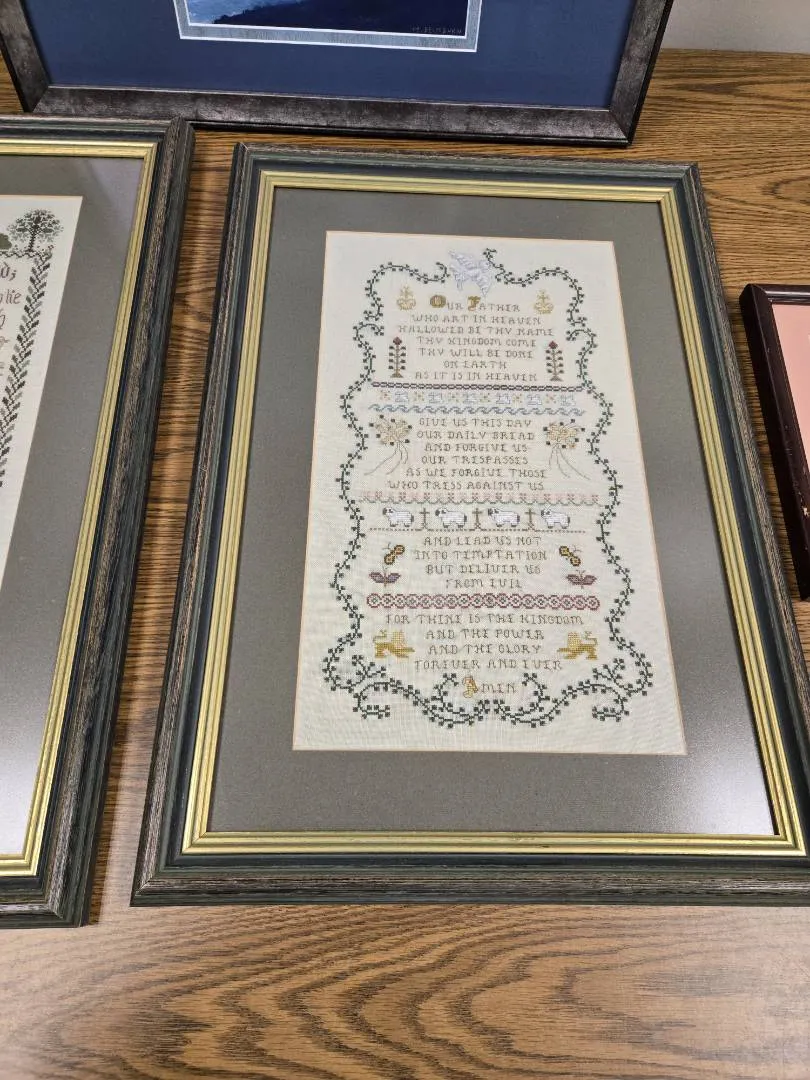 OUR FATHER
WHO ART IN HEAVEN
HALLOWED BE THY NAME
THY KINGDOM COME
THY WILL BE DONE
ON EARTH
AS IT IS IN HEAVEN
GIVE US THIS DAY
OUR DAILY BREAD
AND FORGIVE US
OUR TRESPASSES
AS WE FORGIVE THOSE
WHO TRESS AGAINST US
AND LEAD US NOT
INTO TEMPTATION
BUT DELIVER US
FROM EVIL
FOR THINE IS THE KINGDOM
AND THE POWER
AND THE GLORY
FOREVER AND EVER
AMEN